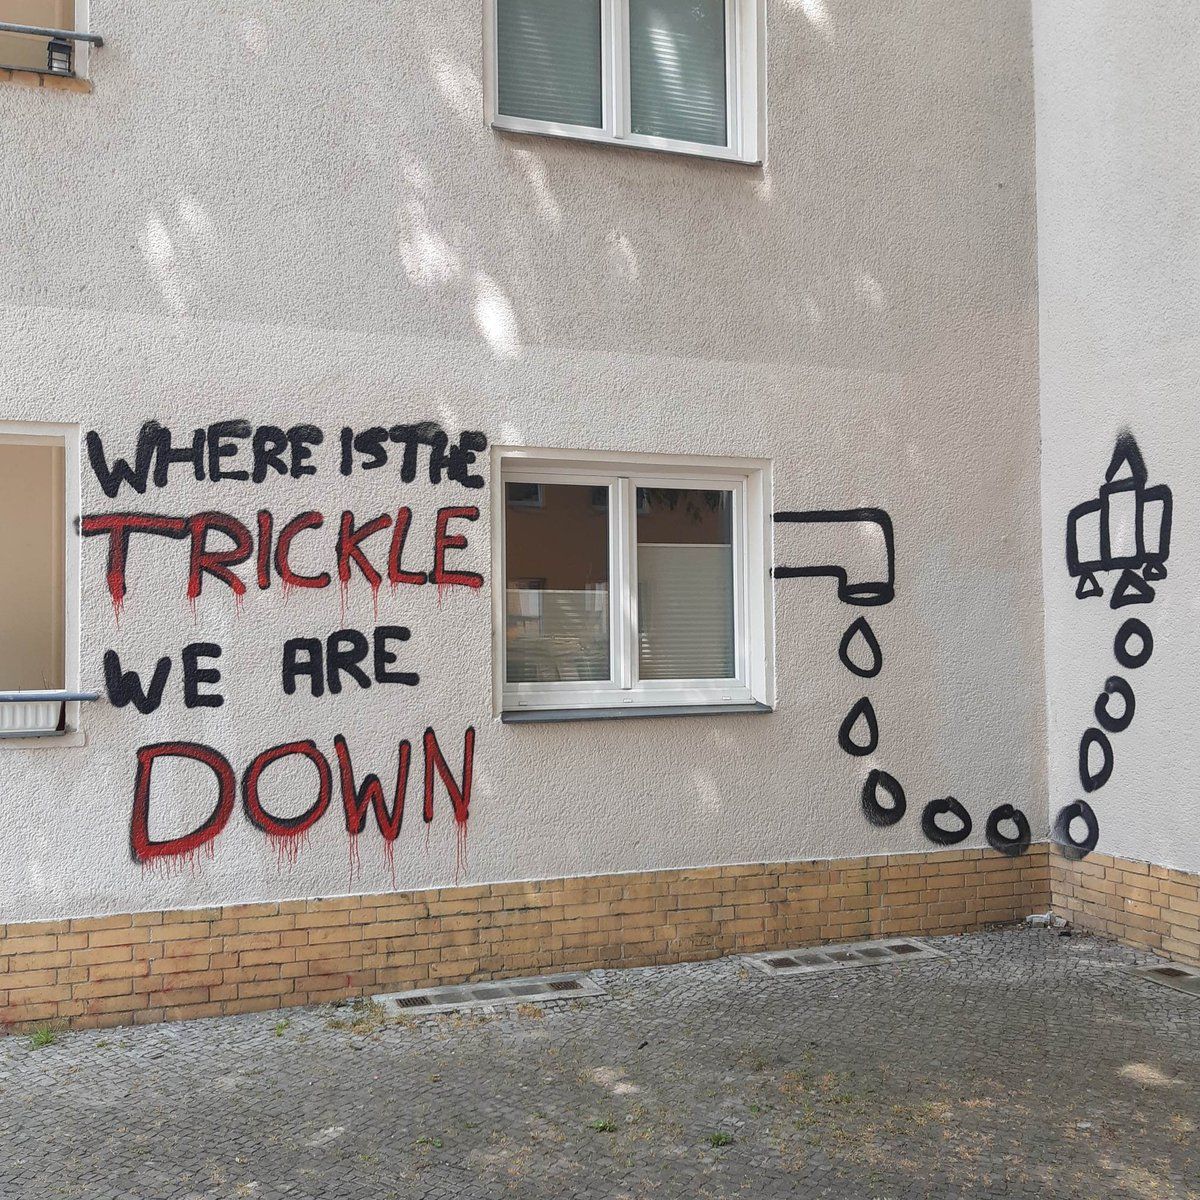 WHERE IS THE
TRICKLE
WE ARE
DOWN